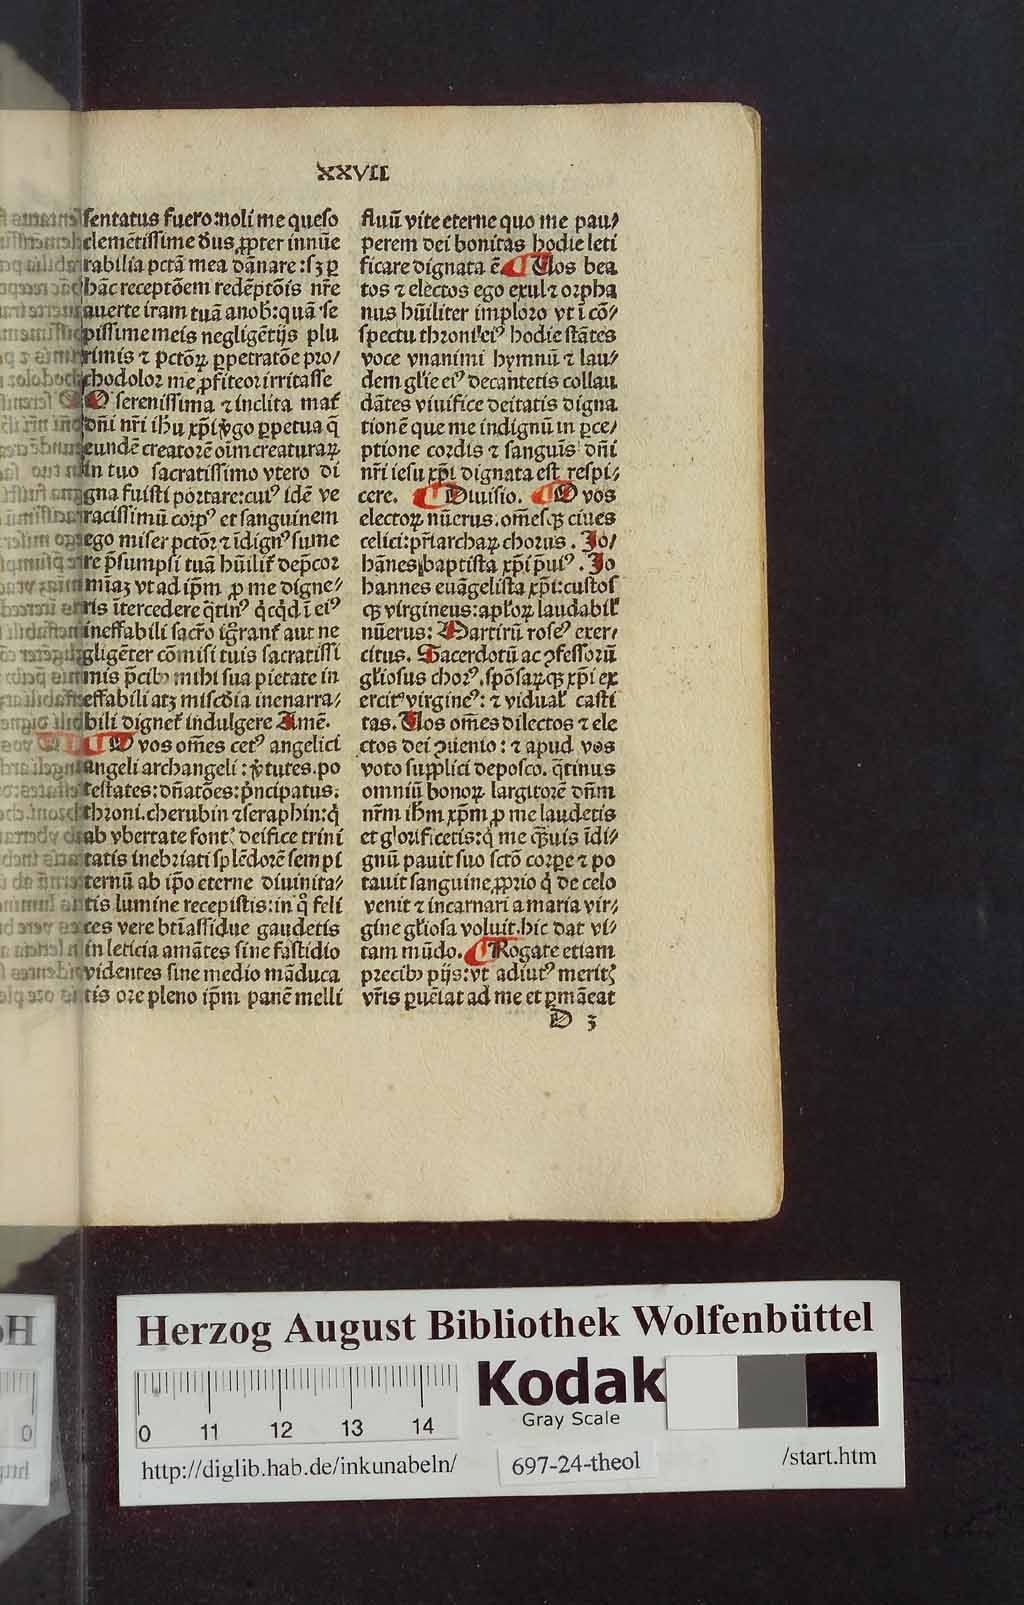 XXVII
sentatus fuero: noli me queso
clemētissime dūs ꝓpter innūe
rabilia pctā mea dānare: sꝫ ꝑ
hāc receptōem redēptōis nr̄e
auerte iram tuā a nob̄: quā ꝰse
pissime meis negligētijs plu
rimis ⁊ pctōꝝ ꝑpetratōe pro/
chodolor me ꝓfiteor irritasse
O serenissima ⁊ inclita mat̄
dn̄i nr̄i ih̄u xp̄i v̄go ꝑpetua q̄
eundē creatorē oīm creaturaꝝ
in tuo sacratissimo vtero di
gna fuisti portare: cuiꝰ idē ve
racissimū corpꝰ et sanguinem
ego miser pctōr ⁊ īdignꝰ sume
re p̄sumpsi tuā hūilit̄ dep̄cor
mīaꝫ vt ad ip̄m ꝓ me digne/
ris īntercedere q̄tinꝰ q̇cq̇d ī eiꝰ
ineffabili sacr̄o igr̄ant̄ aut ne
gligēter cōmisi tuis sacratissi
mis p̄cibꝰ mihi sua pietate in
effabili atꝫ miscd̄ia inenarra/
bili dignet̄ indulgere Amē.
O vos om̄es cetꝰ angelici
angeli archangeli: v̄tutes. po
testates: dn̄atōes: pͥncipatus.
throni. cherubin ⁊ seraphin: q̇
ab vbertate fontꝭ deifice trini
tatis inebriati splēdorē sempi
ternū ab ip̄o eterne diuinita/
tis lumine recepistis: in q̊ feli
ces vere btī assidue gaudetis
in leticia amātes sine fastidio
videntes sine medio māduca
tis ore pleno ip̄m panē melli
fluū vite eterne quo me pau/
perem dei bonitas hodie leti
ficare dignata ē. Vos bea
tos ⁊ electos ego exul ⁊ orpha
nus hūiliter imploro vt ī cō/
spectu throni eiꝰ hodie stātes
voce vnanimi hymnū ⁊ lau/
dem glīe eiꝰ decantetis collau
dātes viuifice deitatis digna
tionē que me indignū in ꝑce/
ptione cordis ⁊ sanguīs dn̄i
nr̄i iesu xp̄i dignata est respi/
cere. Diuisio. O vos
electoꝝ nūerus. om̄esqꝫ ciues
celici: pr̄iarchaꝝ chorus. Jo/
hānes baptista xp̄i p̄uiꝰ. Jo
hannes euāgelista xp̄i: custos
qꝫ virgineus: apl̄oꝝ laudabil̄
nūerus: Martirū roseꝰ exer/
citus. Sacerdotū ac ꝯfessorū
gl̄iosus chorꝰ. spōsaꝝqꝫ xp̄i ex
ercitꝰ virgineꝰ: ⁊ vidual̄ casti
tas. Vos om̄es dilectos ⁊ ele
ctos dei ꝯuenio: ⁊ apud vos
voto supplici deposco. q̄tinus
omniū bonoꝝ largitorē dn̄m
nr̄m ih̄m xp̄m ꝓ me laudetis
et glorificetis: q̇ me qꝫuis īdi/
gnū pauit suo sctō corꝑe ⁊ po
tauit sanguine ꝓprio q̇ de celo
venit ⁊ incarnari a maria vir/
gine gl̄iosa voluit. hic dat vi/
tam mūdo. Rogate etiam
precibꝰ pijs: vt adiutꝰ meritꝭ
vr̄is ꝑuēiat ad me et ꝑmāeat
D 3
Herzog August Bibliothek Wolfenbüttel
0 11 12 13 14
Kodak
Gray Scale
http://diglib.hab.de/inkunabeln/
697-24-theol
/start.htm